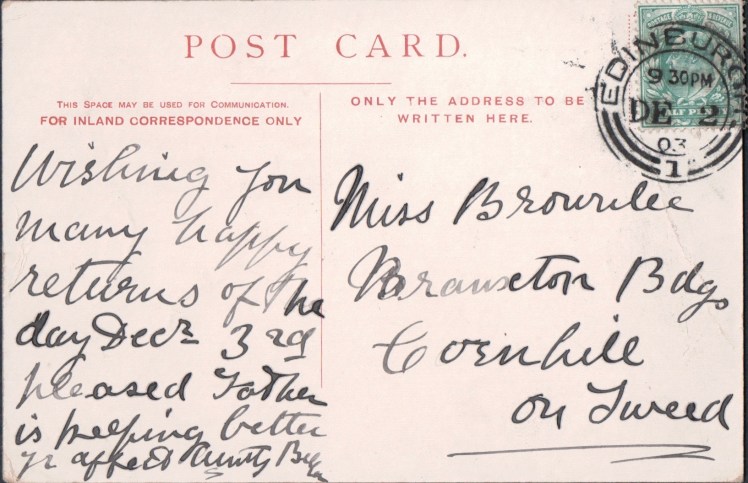 POST CARD.
THIS SPACE MAY BE USED FOR COMMUNICATION.
FOR INLAND CORRESPONDENCE ONLY
ONLY THE ADDRESS TO BE
WRITTEN HERE.
EDINBURGH
9 30PM
DE 2
03
1
Wishing you
many happy
returns of the
day Decr 3rd
pleased Father
is keeping better
yr affect Aunty
Miss Brownlee
Branxton Bdgs
Cornhill
on Tweed